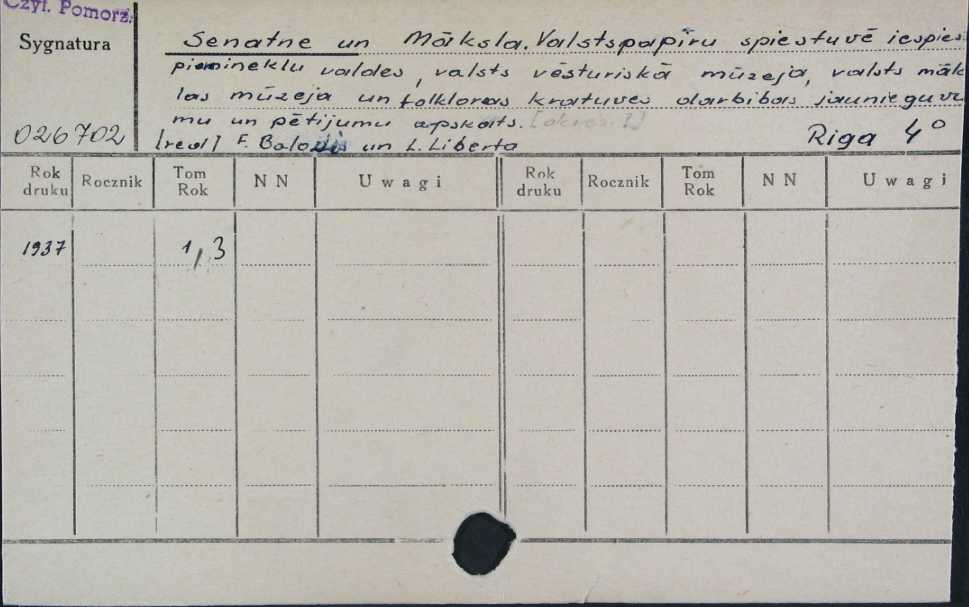 Czyt. Pomorz.
Sygnatura
Senatne un Māksla. Valstspapīru spiestuvē iespies
pieminekļu valdes, valsts vēsturiskā mūzeja, valsts māk
las mūzeja un folkloras krātuves darbības jaunieguvu
mu un pētijumu apskats.
026702
[red] F. Balodis un L. Liberta
Riga 4°
Rok druku Rocznik Tom Rok NN Uwagi Rok druku Rocznik Tom Rok NN Uwagi
1937 1, 3